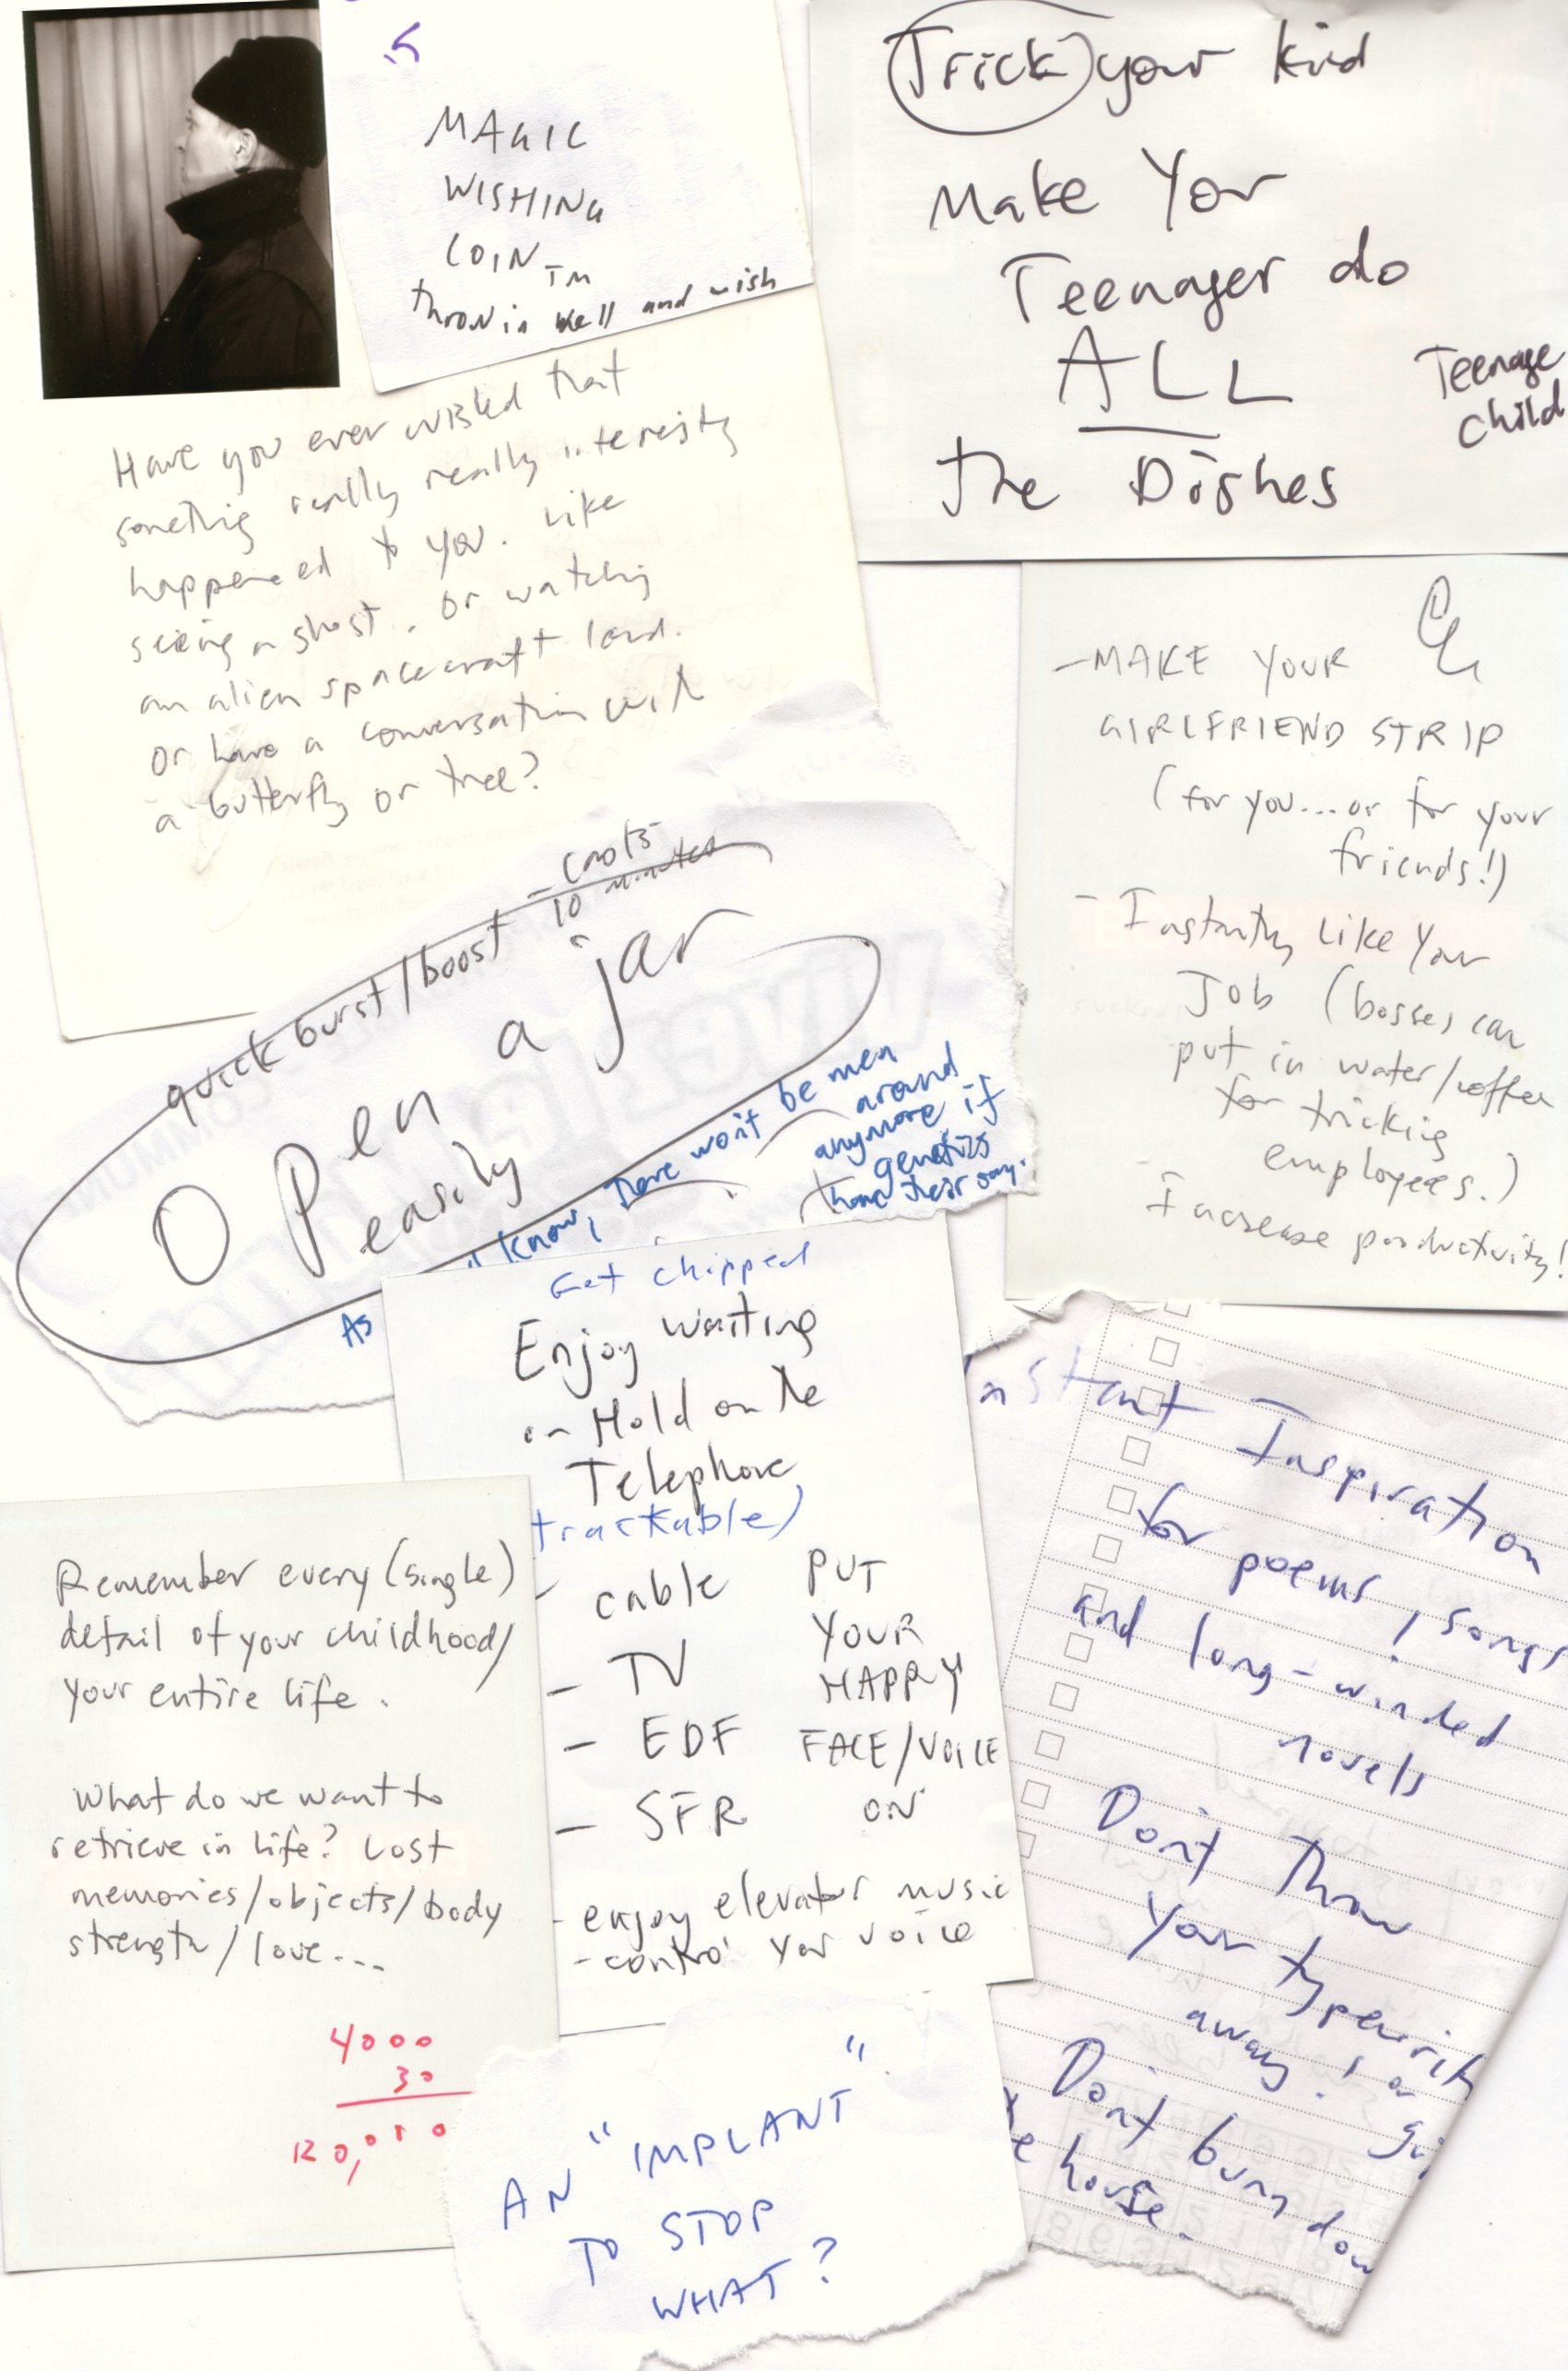 MAGIC
WISHING
COIN TM
throw in well and wish
Trick your kid
Make Your
Teenager do
ALL
the Dishes
Teenage
child
Have you ever wished that
something really really interesting
happened to you. Like
seeing a ghost. Or watching
an alien spacecraft land.
or have a conversation with
a butterfly or tree?
-MAKE YOUR
GIRLFRIEND STRIP
(for you...or for your
friends!)
- Instantly Like Your
Job (bosses can
put in water/coffee
for tricking
employees.)
Increase productivity!
quick burst/boost -
10 minutes
Open
easily
a jar
As
know, there won't be men
around
anymore if
genetics
have their say.
Get chipped
Enjoy waiting
on Hold on the
Telephone
trackable)
- cable
- TV
- EDF
- SFR
PUT
YOUR
HAPPY
FACE/VOICE
ON
- enjoy elevator music
- control your voice
Instant Inspiration
for poems, songs
and long-winded
novels
Don't Throw
your typewrit
away! or gi
Don't burn dow
e house.
Remember every (single)
detail of your childhood/
your entire life.
What do we want to
retrieve in life? Lost
memories/objects/body
strength/love...
4000
30
120,000
AN "IMPLANT"
TO STOP
WHAT?